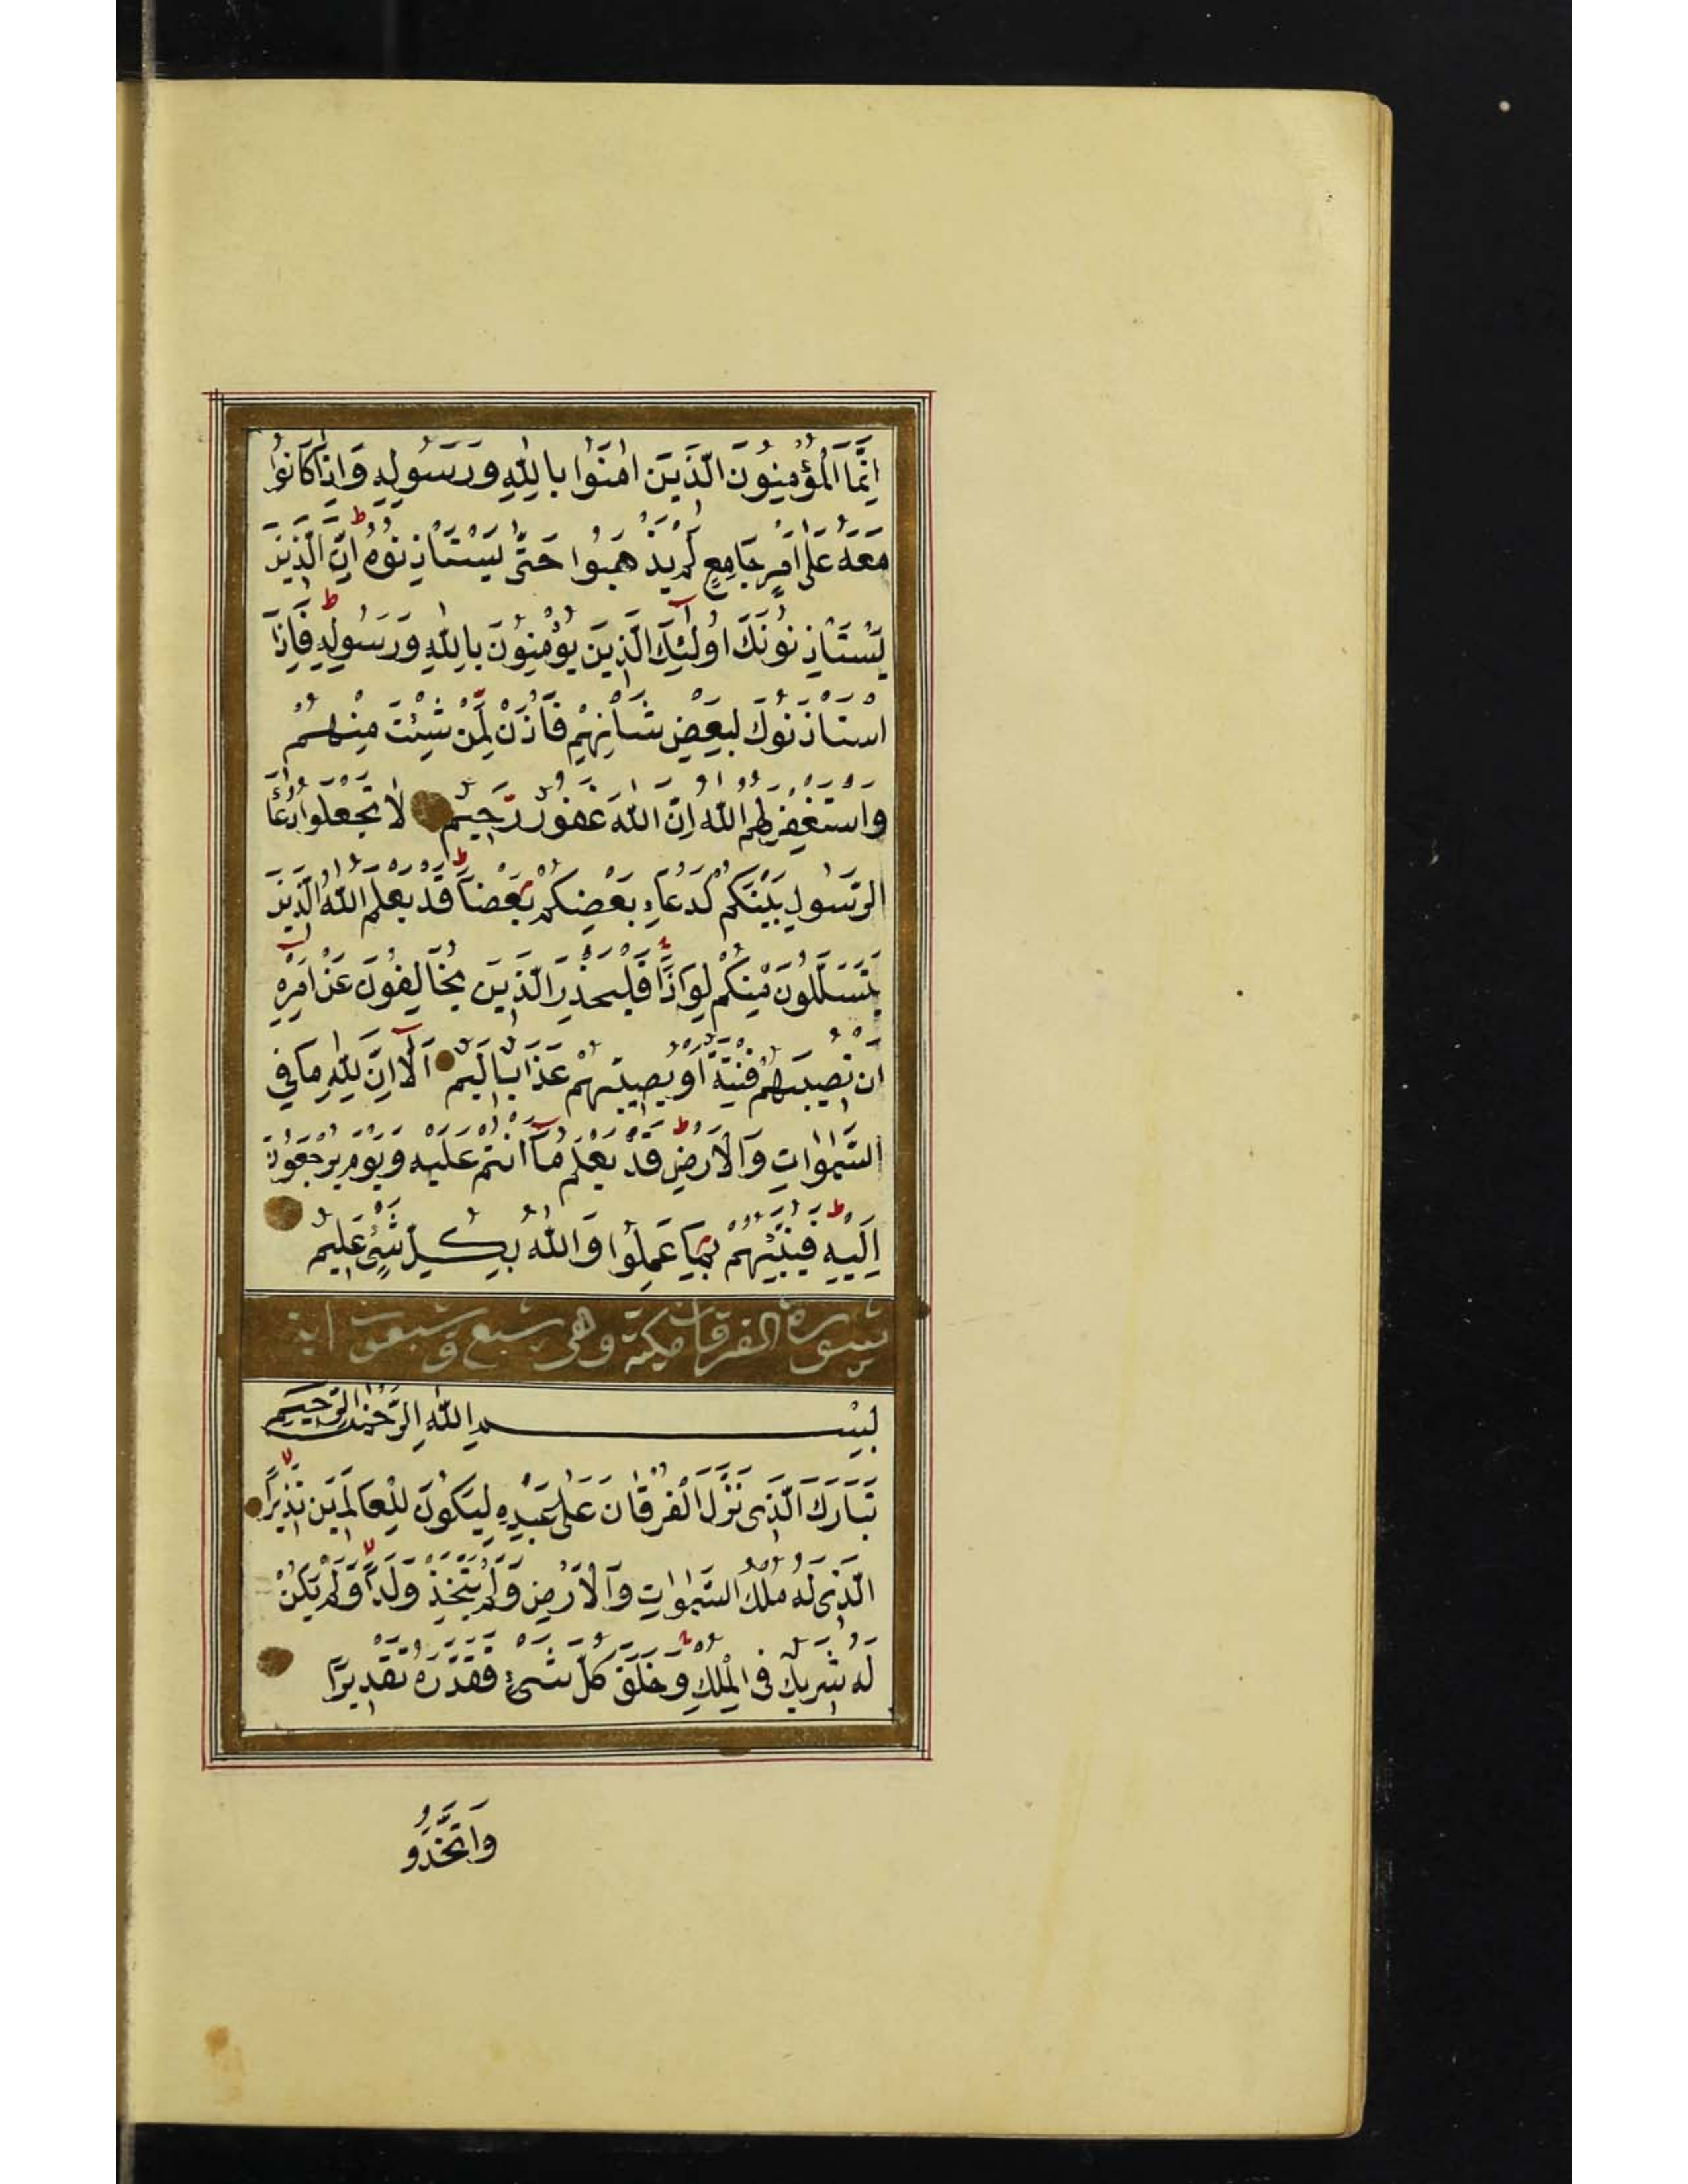 اِنَّمَا الْمُؤْمِنُونَ الَّذَينَ اٰمَنُوا بِاللّٰهِ وَرَسُولِهِ وَاِذَا كَانُوا
مَعَهُ عَلٰى اَمْرٍ جَامِعٍ لَمْ يَذْهَبُوا حَتّٰى يَسْتَاْذِنُوهُ اِنَّ الَّذِينَ
يَسْتَاْذِنُونَكَ اُولٰئِكَ الَّذِينَ يُؤْمِنُونَ بِاللّٰهِ وَرَسُولِهِ فَاِذَا
اسْتَاْذَنُوكَ لِبَعْضِ شَاْنِهِمْ فَاْذَنْ لِمَنْ شِئْتَ مِنْهُمْ
وَاسْتَغْفِرْ لَهُمُ اللّٰهَ اِنَّ اللّٰهَ غَفُورٌ رَحِيمٌ لَا تَجْعَلُوا دُعَاءَ
الرَّسُولِ بَيْنَكُمْ كَدُعَاءِ بَعْضِكُمْ بَعْضًا قَدْ يَعْلَمُ اللّٰهُ الَّذِينَ
يَتَسَلَّلُونَ مِنْكُمْ لِوَاذًا فَلْيَحْذَرِ الَّذِينَ يُخَالِفُونَ عَنْ اَمْرِهِ
اَنْ تُصِيبَهُمْ فِتْنَةٌ اَوْ يُصِيبَهُمْ عَذَابٌ اَلِيمٌ اَلَا اِنَّ لِلّٰهِ مَا فِي
السَّمٰوَاتِ وَالْاَرْضِ قَدْ يَعْلَمُ مَا اَنْتُمْ عَلَيْهِ وَيَوْمَ يُرْجَعُونَ
اِلَيْهِ فَيُنَبِّئُهُمْ بِمَا عَمِلُوا وَاللّٰهُ بِكُلِّ شَيْءٍ عَلِيمٌ
سورة الفرقان مكية وهى سبع وسبعون اية
بِسْمِ اللّٰهِ الرَّحْمٰنِ الرَّحِيمِ
تَبَارَكَ الَّذِى نَزَّلَ الْفُرْقَانَ عَلٰى عَبْدِهِ لِيَكُونَ لِلْعَالَمِينَ نَذِيرًا
الَّذِى لَهُ مُلْكُ السَّمٰوَاتِ وَالْاَرْضِ وَلَمْ يَتَّخِذْ وَلَدًا وَلَمْ يَكُنْ
لَهُ شَرِيكٌ فِى الْمُلْكِ وَخَلَقَ كُلَّ شَىْءٍ فَقَدَّرَهُ تَقْدِيرًا
وَاتَّخَذُو